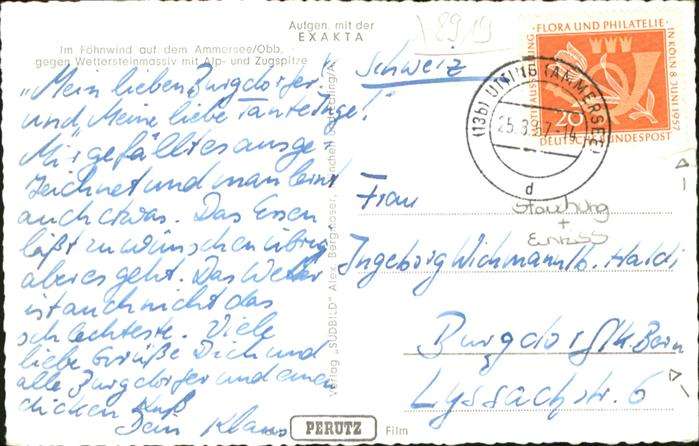 Aufgen. mit der
EXAKTA
Im Föhnwind auf dem Ammersee/Obb.
gegen Wettersteinmassiv mit Alp- und Zugspitze
8919
"Mein lieben Burgdorfer
und "Meine liebe Tante Inge!"
Mir gefällt es ausge-
zeichnet und man lernt
auch etwas. Das Essen
läßt zu wünschen übrig
aber es geht. Das Wetter
ist auch nicht das
schlechteste. Viele
liebe Grüße Dich und
alle Burgdorfer und einen
dicken Kuß
Dein Klaus
Verlag „SÜDBILD" Alex. Berghoser, München
PERUTZ Film
FLORA UND PHILATELIE
IN KÖLN 8. JUNI 1957
20
DEUTSCHE BUNDESPOST
(13b) UTTING (AMMERSEE)
25.8.57-14
d
Schweiz
Frau
Starnberg
+
Ingeborg Wichmann b. Haldi
Burgdorf/K. Bern
Lyssachstr. 6